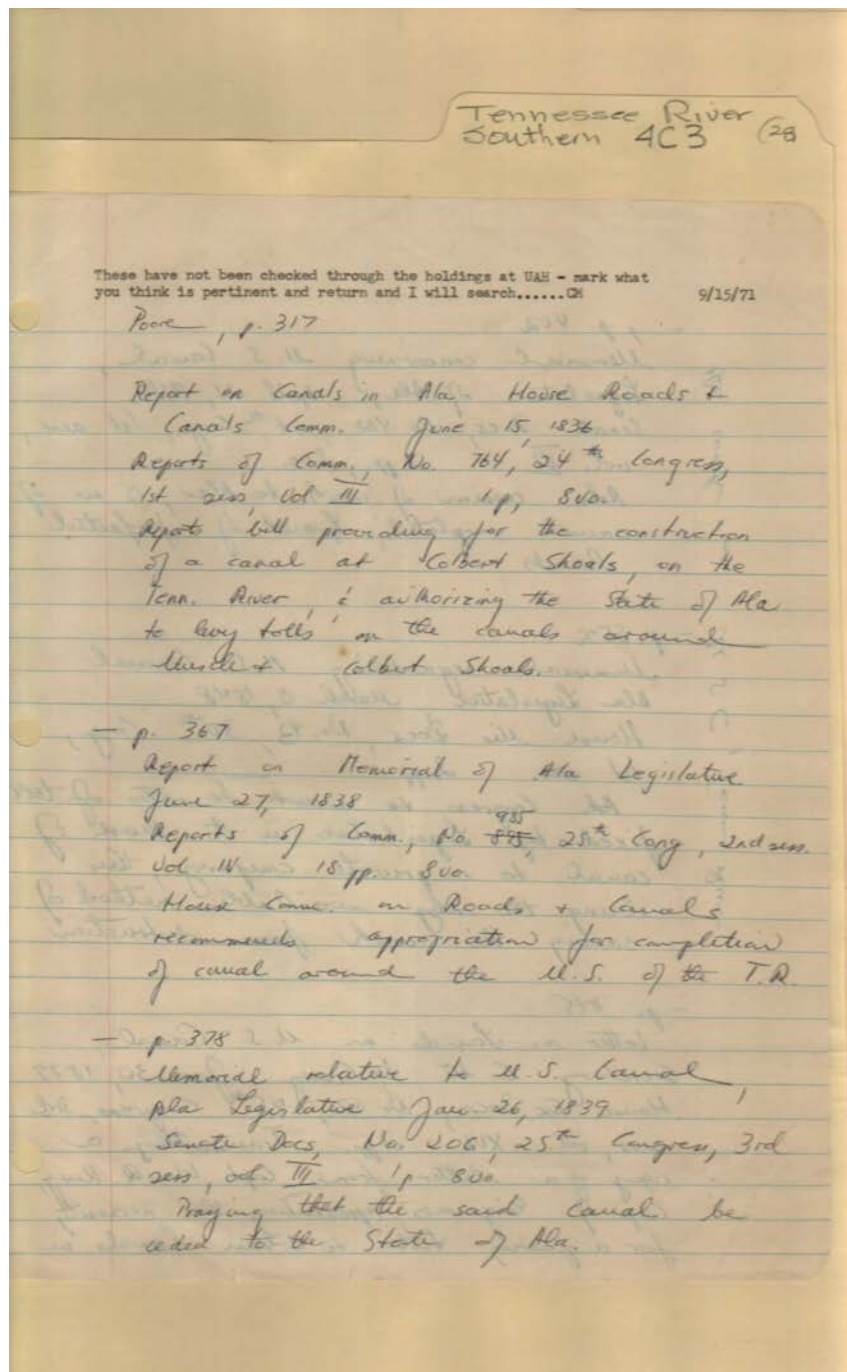 Tennessee River
Southern 4C3 (28
These have not been checked through the holdings at UAH - mark what
you think is pertinent and return and I will search......CM 9/15/71
Poore, p. 317
Report on Canals in Ala House Roads &
Canals Comm. June 15, 1836
Reports of Comm., No. 764, 24th Congress,
1st sess, Vol III 1 p, 8vo.
Reports bill providing for the construction
of a canal at Colbert Shoals, on the
Tenn. River, & authorizing the State of Ala
to levy tolls on the canals around
Muscle & Colbert Shoals.
— p. 367
Report on Memorial of Ala Legislative
June 27, 1838
985
Reports of Comm., No 895, 25th Cong, 2nd sess.
Vol IV 18 pp. 8vo
House Comm. on Roads & Canals
recommends appropriation for completion
of canal around the M.S. of the T.R.
— p. 378
Memorial relative to M.S. Canal,
Ala Legislative Jan. 26, 1839
Senate Docs, No. 206, 25th Congress, 3rd
sess, vol III 1 p 8vo.
Praying that the said canal be
ceded to the State of Ala.